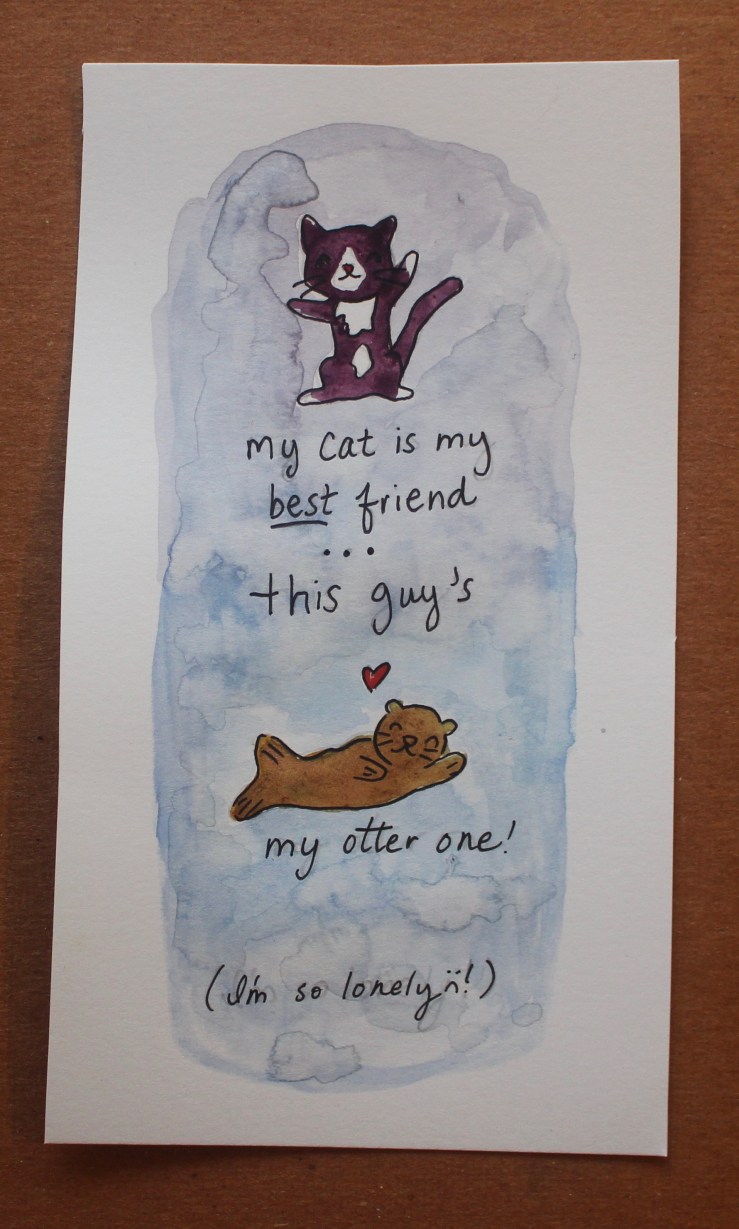 my cat is my
best friend
...
this guy's
my otter one!
(I'm so lonely ¨∩!)